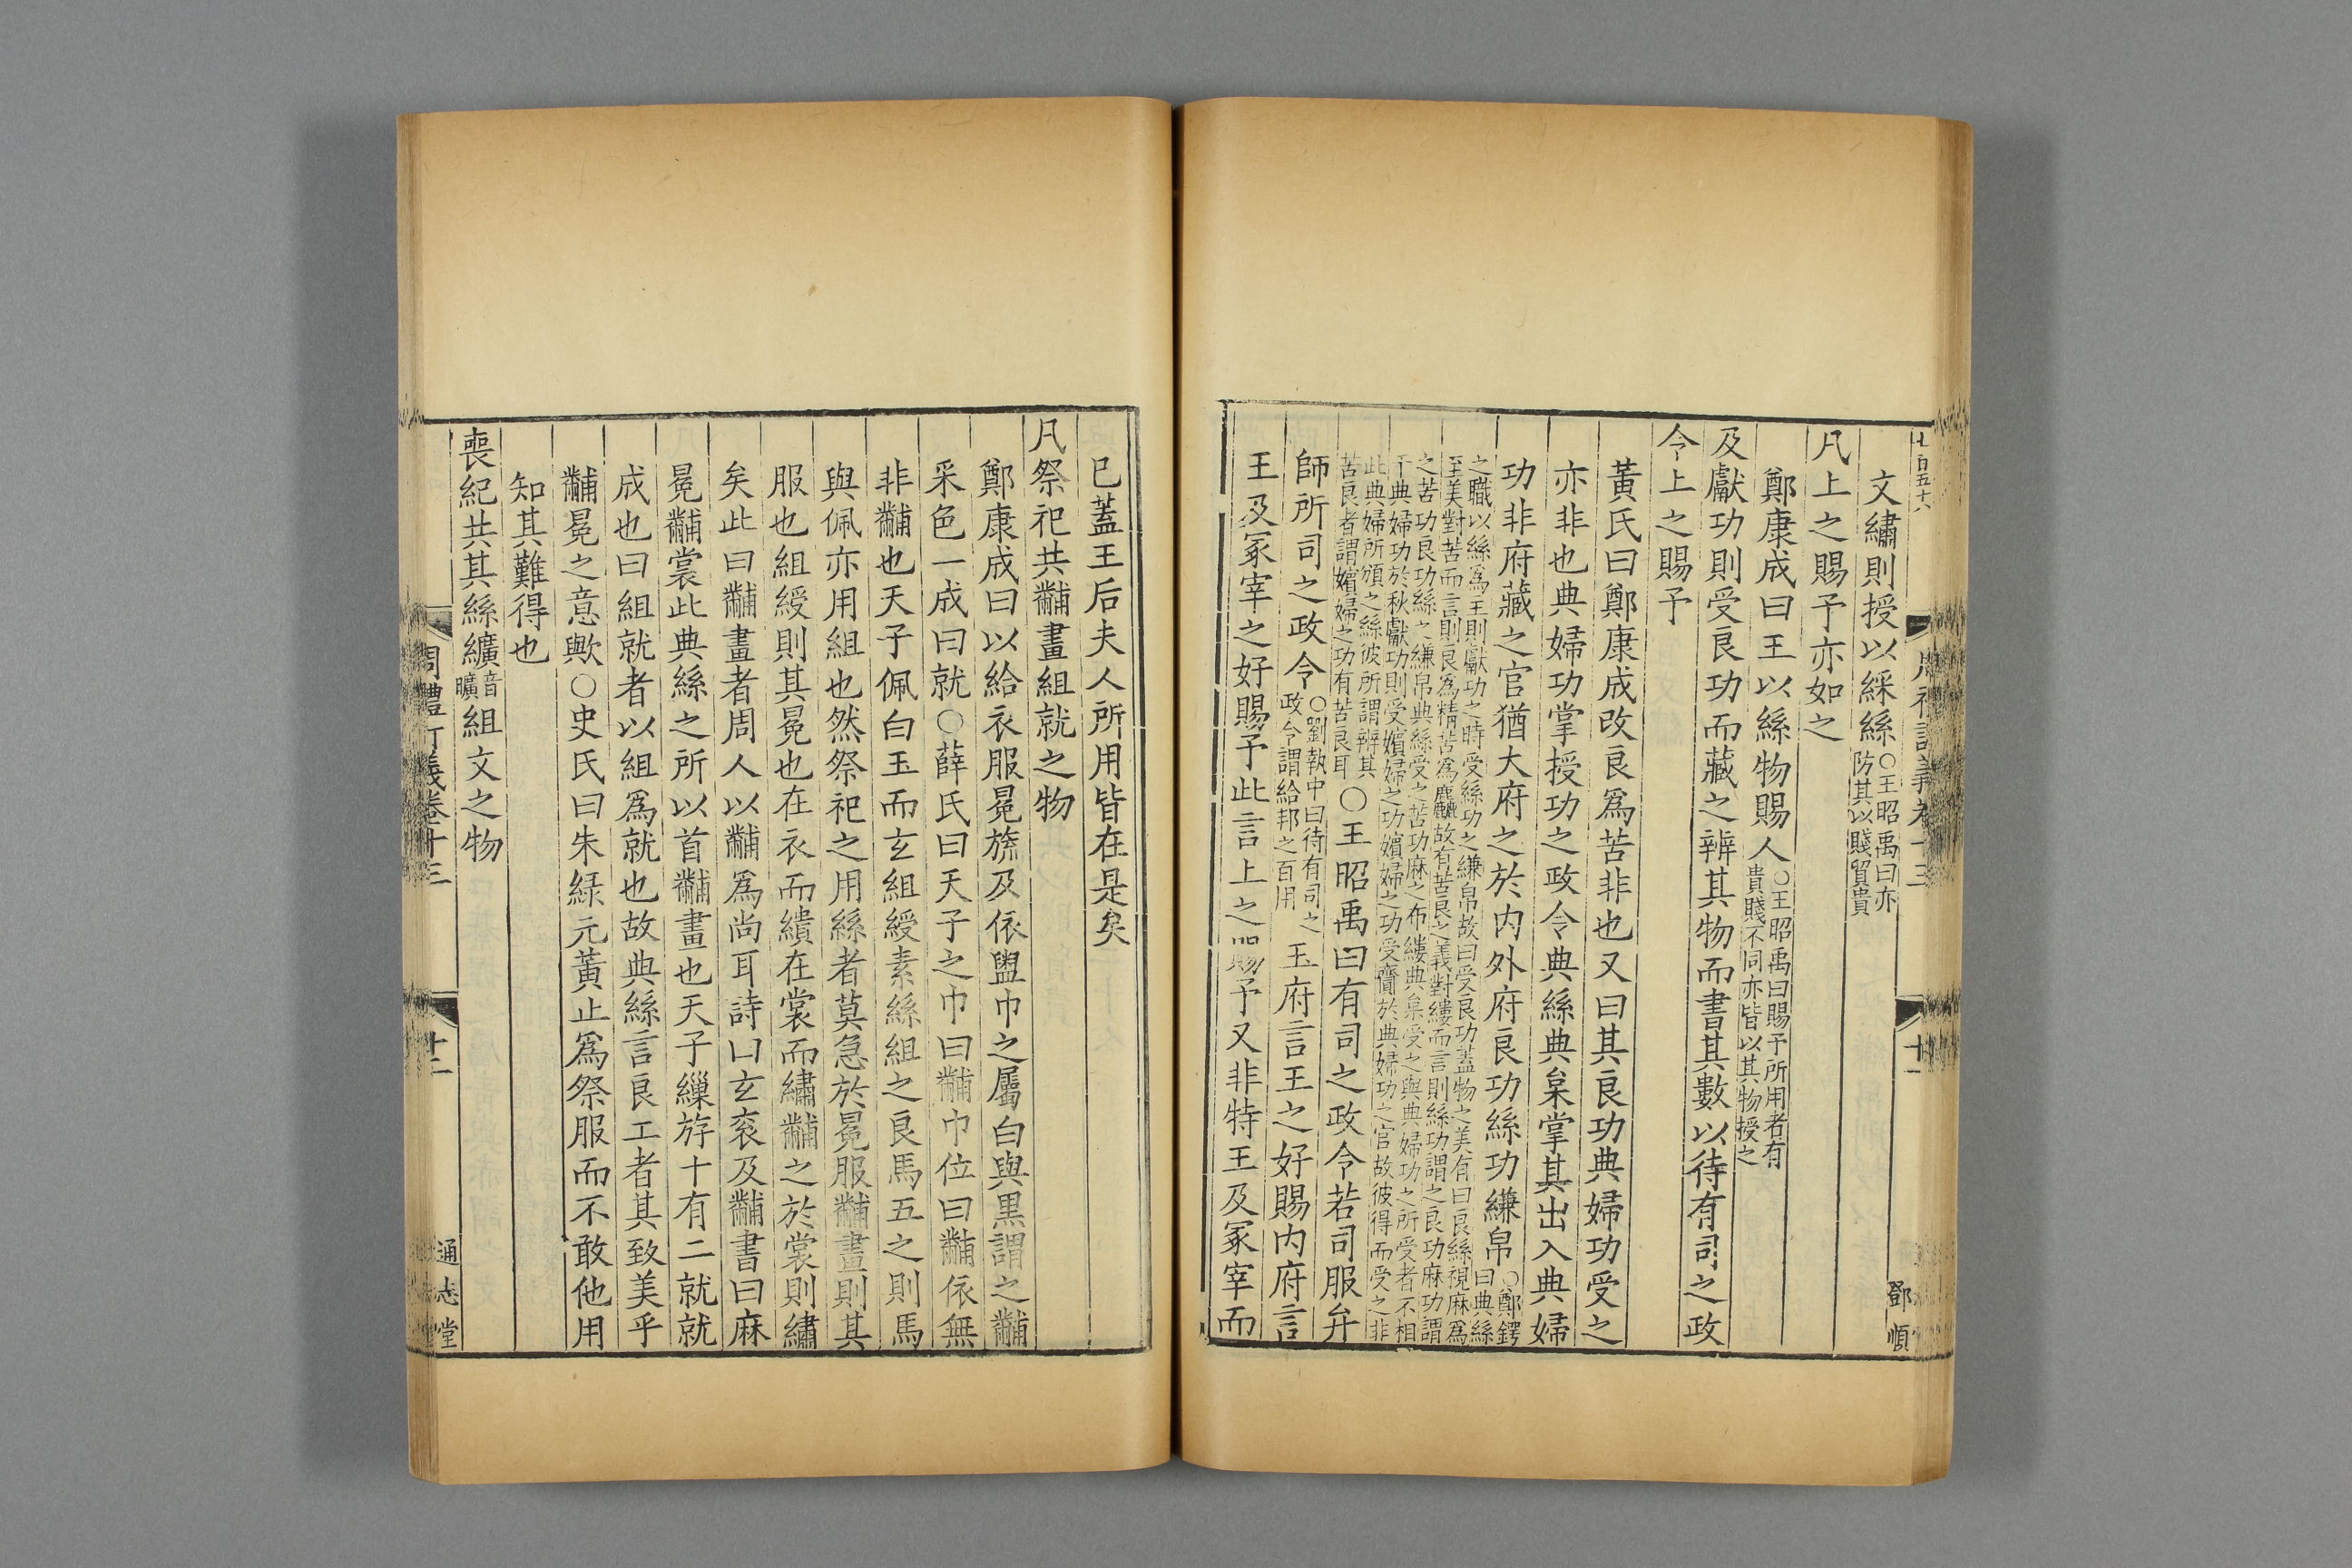 七百五十六
周禮訂義卷十三
十一
鄧順
文繡則授以綵絲○王昭禹曰亦防其以賤貿貴
凡上之賜予亦如之
鄭康成曰王以絲物賜人○王昭禹曰賜予所用者有貴賤不同亦皆以其物授之
及獻功則受良功而藏之辨其物而書其數以待有司之政
令上之賜予
黃氏曰鄭康成改良為苦非也又曰其良功典婦功受之
亦非也典婦功掌授功之政令典絲典枲掌其出入典婦
功非府藏之官猶大府之於內外府良功絲功縑帛○鄭鍔曰典絲
之職以絲為主則獻功之時受絲功之縑帛故曰受良功蓋物之美有曰良絲視麻為
至美對苦而言則良為精苦為麤故有苦良之義對縷而言則絲功謂之良功麻功謂
之苦功良功絲之縑帛典絲受之苦功麻之布縷典枲受之與典婦功之所受者不相
干典婦功於秋獻功則受嬪婦之功嬪婦之功受齎於典婦功之官故彼得而受之非
此典婦所頒之絲彼所謂辨其
苦良者謂嬪婦之功有苦良耳○王昭禹曰有司之政令若司服弁
師所司之政令○劉執中曰待有司之政令謂給邦之百用玉府言王之好賜內府言
王及冢宰之好賜予此言上之賜予又非特王及冢宰而
已蓋王后夫人所用皆在是矣
凡祭祀共黼畫組就之物
鄭康成曰以給衣服冕旒及依盥巾之屬白與黑謂之黼
采色一成曰就○薛氏曰天子之巾曰黼巾位曰黼依無
非黼也天子佩白玉而玄組綬素絲組之良馬五之則馬
與佩亦用組也然祭祀之用絲者莫急於冕服黼畫則其
服也組綬則其冕也在衣而繢在裳而繡黼之於裳則繡
矣此曰黼畫者周人以黼為尚耳詩曰玄袞及黼書曰麻
冕黼裳此典絲之所以首黼畫也天子繅斿十有二就就
成也曰組就者以組為就也故典絲言良工者其致美乎
黼冕之意歟○史氏曰朱緑元黃止為祭服而不敢他用
知其難得也
喪紀共其絲纊音曠組文之物
周禮訂義卷十三
十二
通志堂